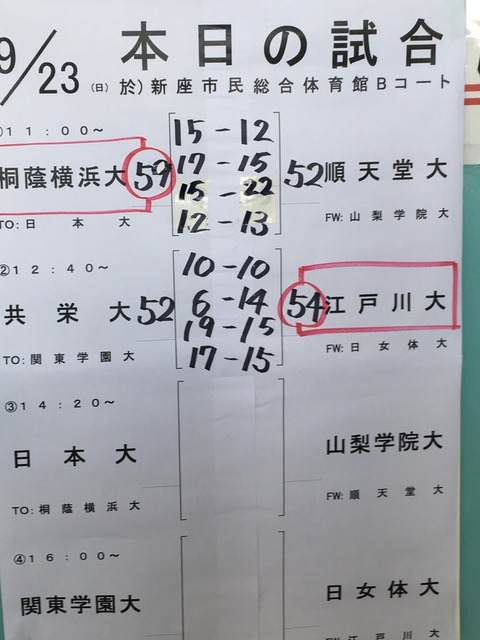 9/23 (日) 本日の試合
於)新座市民総合体育館Bコート
①11:00～
桐蔭横浜大 59 52 順天堂大
15-12
17-15
15-22
12-13
TO:日本大 FW:山梨学院大
②12:40～
共栄大 52 54 江戸川大
10-10
6-14
19-15
17-15
TO:関東学園大 FW:日女体大
③14:20～
日本大 山梨学院大
TO:桐蔭横浜大 FW:順天堂大
④16:00～
関東学園大 日女体大
FW:江戸川大